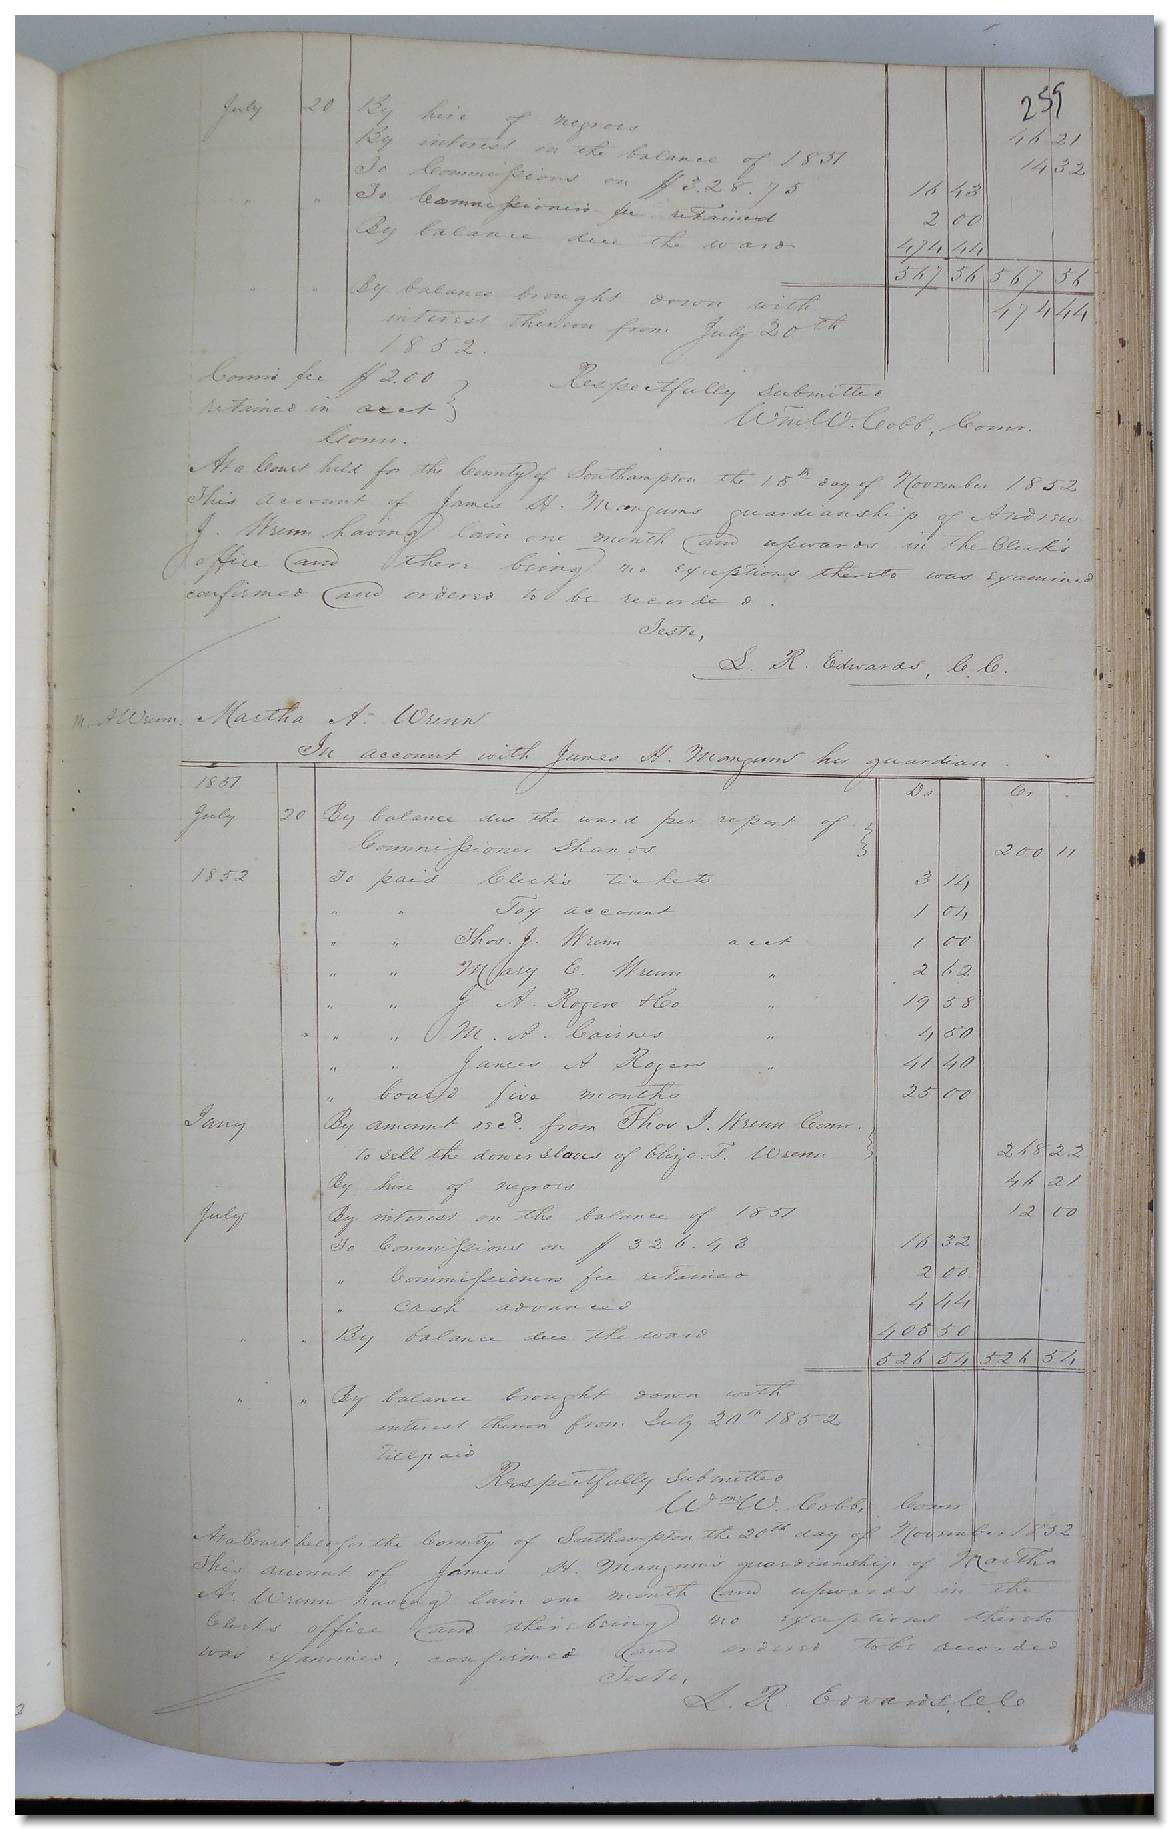 259
July 20 By hire of negroes 46 21
By interest on the balance of 1851 14 32
To Commissions on $328.75 16 43
" " To Commissioners fee retained 2 00
By balance due the ward 474 44
567 56 567 56
" " By balance brought down with 474 44
interest thereon from July 20th
1852.
Comrs fee $2.00 } Respectfully submitted
retained in acct } Wm W. Cobb, Comr.
Comr.
At a Court held for the County of Southampton the 15th day of November 1852
This account of James H. Mangums guardianship of Andrew
J. Wrenn having lain one month and upwards in the Clerk's
office and there being no exceptions thereto was examined
confirmed and ordered to be recorded.
Teste,
L. R. Edwards, C. C.
M. A Wrenn. Martha A. Wrenn
In account with James H. Mangums her guardian.
1851 Dr Cr
July 20 By balance due the ward per report of }
Commissioner Shands } 200 11
1852 To paid Clerk's tickets 3 14
" " Tax account 1 04
" " Thos. J. Wrenn acct 1 00
" " Mary E. Wrenn " 2 62
" " J. A. Rogers & Co " 19 58
" " " M. A. Cairnes " 4 50
" " James A Rogers " 41 40
" board five months 25 00
Jany By amount recd. from Thos J. Wrenn Comr. }
to sell the dower slaves of Eliza. T. Wrenn } 268 22
By hire of negroes 46 21
July By interest on the balance of 1851 12 00
To Commissions on $326.43 16 32
" Commissioners fee retained 2 00
" cash advanced 4 44
" " By balance due the ward 405 50
526 54 526 54
" " By balance brought down with
interest thereon from July 20th 1852
till paid
Respectfully submitted
Wm W. Cobb, Comr
At a Court held for the County of Southampton the 20th day of November 1852
This account of James H. Mangum's guardianship of Martha
A. Wrenn having lain one month and upwards in the
Clerks office and there being no exceptions thereto
was examined, confirmed and ordered to be recorded
Teste,
L. R. Edwards, C. C.